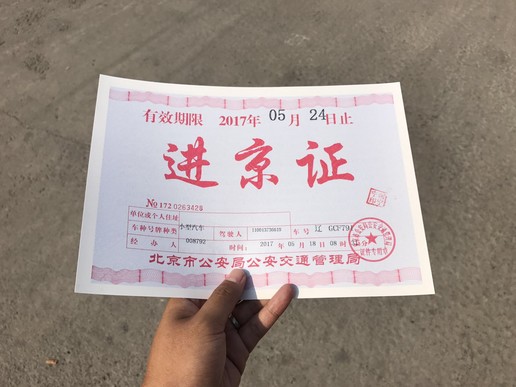 有效期限 2017年 05 月 24日止
进京证
№172 0283428
单位或个人住址
车种号牌种类 小型汽车 驾驶人 车号 辽
经 办 人 008792 时间: 2017 年 05 月 18日 08
北京市公安局公安交通管理局